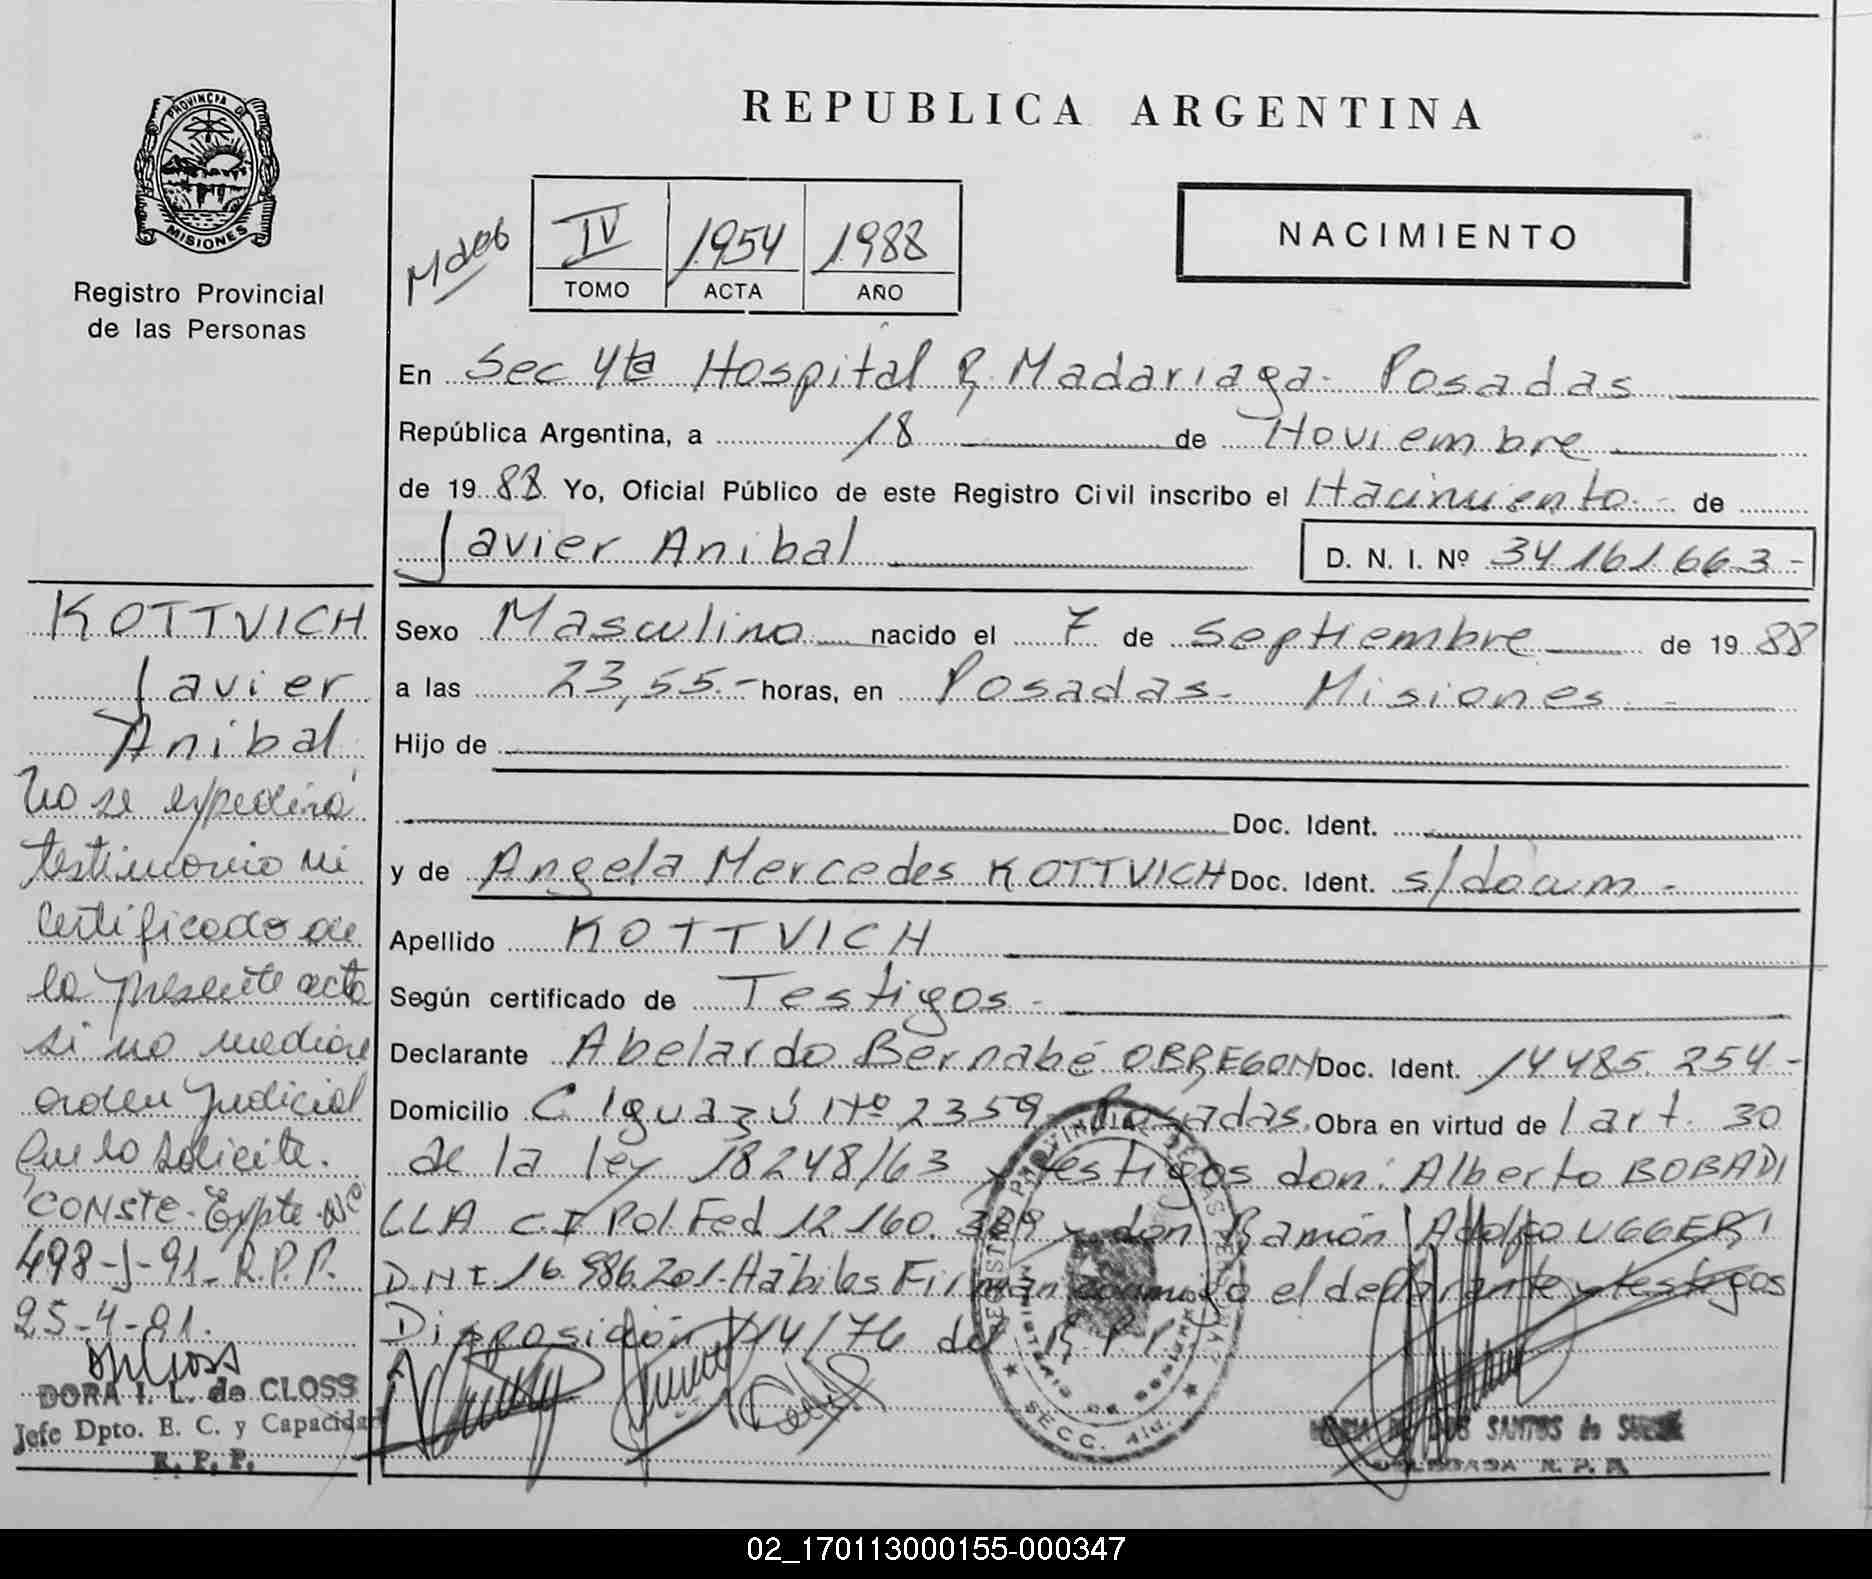 PROVINCIA DE
MISIONES
Registro Provincial
de las Personas
REPUBLICA ARGENTINA
IV 1954 1988
TOMO ACTA AÑO
NACIMIENTO
En Sec 4ta Hospital R. Madariaga - Posadas
República Argentina, a 18 de Noviembre
de 1988 Yo, Oficial Público de este Registro Civil inscribo el Nacimiento - de
Javier Anibal
D. N. I. Nº 34161663-
KOTTVICH
Javier
Anibal
No se expedirá
testimonio ni
certificado de
la presente acta
si no mediare
orden Judicial
que lo solicite.
CONSTE - Expte. Nº
498-J-91- R.P.P.
25-4-91.
DORA I. L. de CLOSS
Jefe Dpto. E. C. y Capacidad
R. P. P.
Sexo Masculino nacido el 7 de Septiembre de 1988
a las 23,55.- horas, en Posadas - Misiones -
Hijo de
Doc. Ident.
y de Angela Mercedes KOTTVICH Doc. Ident. s/docum -
Apellido KOTTVICH
Según certificado de Testigos -
Declarante Abelardo Bernabé OBREGON Doc. Ident. 14.485.254-
Domicilio C. Iguazú Nº 2359 Posadas. Obra en virtud del art. 30
de la ley 18248/63 y testigos don: Alberto BOBADI
LLA C.I Pol. Fed 12.160. y don Ramón Adolfo UGGERI
DNI 16.986.201.- Hábiles Firman conmigo el declarante y testigos
Disposición 114/76 del R.P.P.
DOS SANTOS de
R. P. P.
02_170113000155-000347